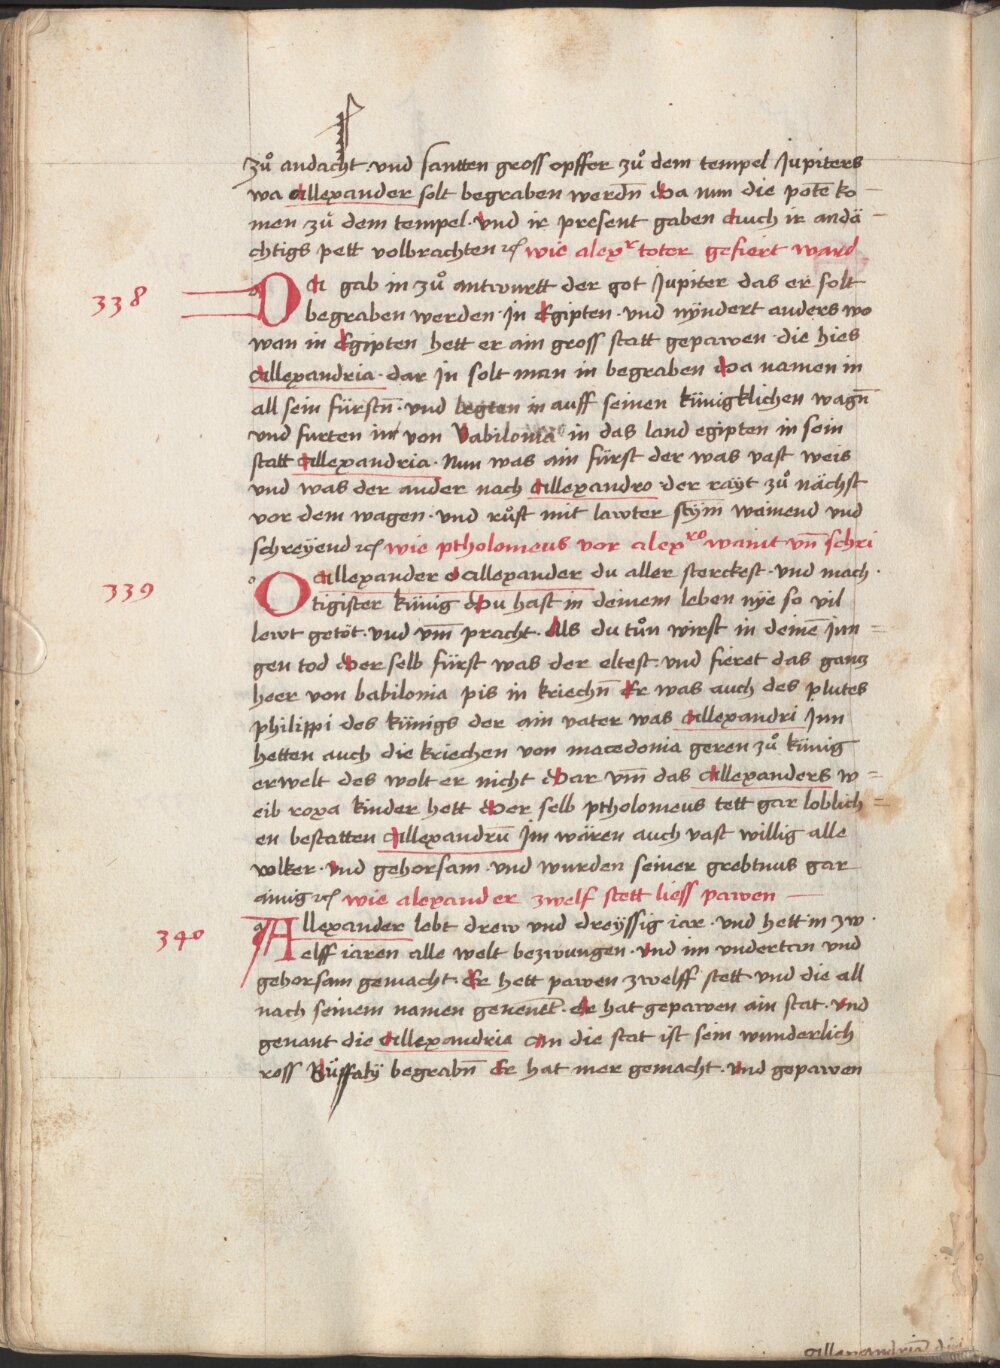 zů andacht · vnd santten gross opffer zů dem tempel Jupiters
wa allexander solt begraben werdn̄ Da nun die potē ko
men zů dem tempel · Vnd ir present gaben Auch ir andä
chtigs pett volbrachten ꝛc̃ wie alexʳ toter gefiert ward
338
DA gab in zů antwurtt der got Jupiter das er solt
begraben werden · Jn Egipten · vnd nÿndert anders wo
wan in Egipten hett er ain gross statt gepawen · die hies
Allexandria · dar Jn solt man in begraben Da namen in
all sein fürstn̄ · vnd legten in auff seinen künigklichen wagn̄
vnd furten in von Babilonia in das land egipten in sein
statt Allexandria · Nun was ain fürst der was vast weis
vnd was der ander nach Allexandro · der rayt zů nächst
vor dem wagen · vnd růft mit lawter stym̄ weinend vnd
schreÿend ꝛc̃ wie ptholomeus vor alexʳᵒ waint vn̄ schri
339
O Allexander o Allexander du aller sterckest · vnd mach ·
tigister künig Du hast in deinem leben nÿe so vil
lewt getöt · vnd vm̄ pracht · Als du tůn wirst in deinē Jun
gen tod Der selb fürst was der eltest · vnd fieret das gantz
heer von babilonia pis in kriechn̄ Er was auch des plutes
philippi des künigs der ain vater was Allexandri Jnn
hetten auch die kriechen von macedonia geren zů künig
erwelt des wolt er nicht Dar vm̄ das Allexanders w
eib roxa kinder hett Der selb ptholomeus tett gar loblich
en bestatten Allexandrū Jm wären auch vast willig alle
volker · Vnd gehorsam · vnd wurden seiner grebtnus gar
ainig ꝛc̃ wie alexander zwelf stett liess pawen
340
Allexander lebt drew vnd dreÿssig iar · vnd hett in zw ·
elff iaren alle welt bezwungen · Vnd im vndertan vnd
gehorsam gemacht · Er hett pawen zwelff stett · vnd die all
nach seinem namen genennet̄ · Er hat gepawen ain stat · Vnd
genant die Allexandria An die stat ist sein wunderlich
ross Büffaly begrabn̄ Er hat mer gemacht · Vnd gepawen